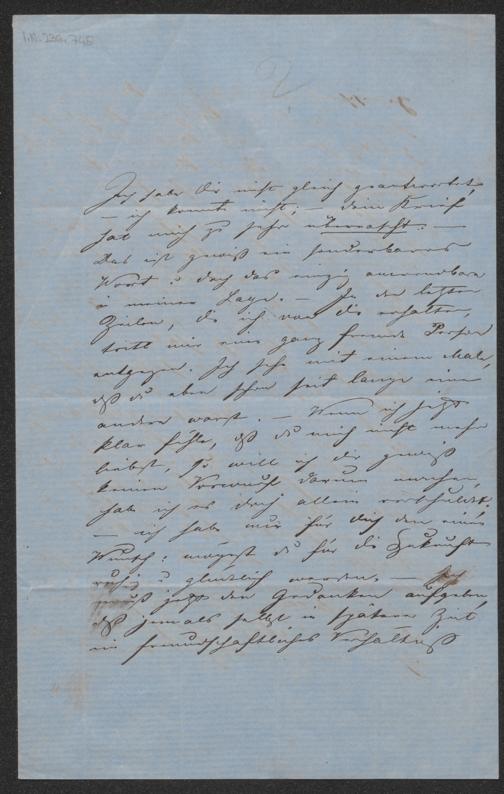 I.N. 236.745
2
Ich habe Dir nicht gleich geantwortet,
– ich konnte nicht; – dein Brief
hat mich zu sehr überrascht. –
Das ist gewiß ein sonderbares
Wort u doch das einzig anwendbare
in meiner Lage. – In den letzten
Zeilen, die ich von dir erhalten,
tritt mir eine ganz fremde Person
entgegen. Ich sehe mit einem Mal,
daß du eben schon seit lange eine
andere warst. – Wenn ich jetzt
klar fühle, daß du mich nicht mehr
liebst, so will ich dir gewiß
keinen Vorwurf darum machen,
habe ich es doch allein verschuldet,
– ich habe nur für dich den einen
Wunsch: mögest du für die Zukunft
ruhig u glücklich werden. – Ich
muß jetzt den Gedanken aufgeben,
daß jemals selbst in später Zeit
ein freundschaftliches Verhältniß